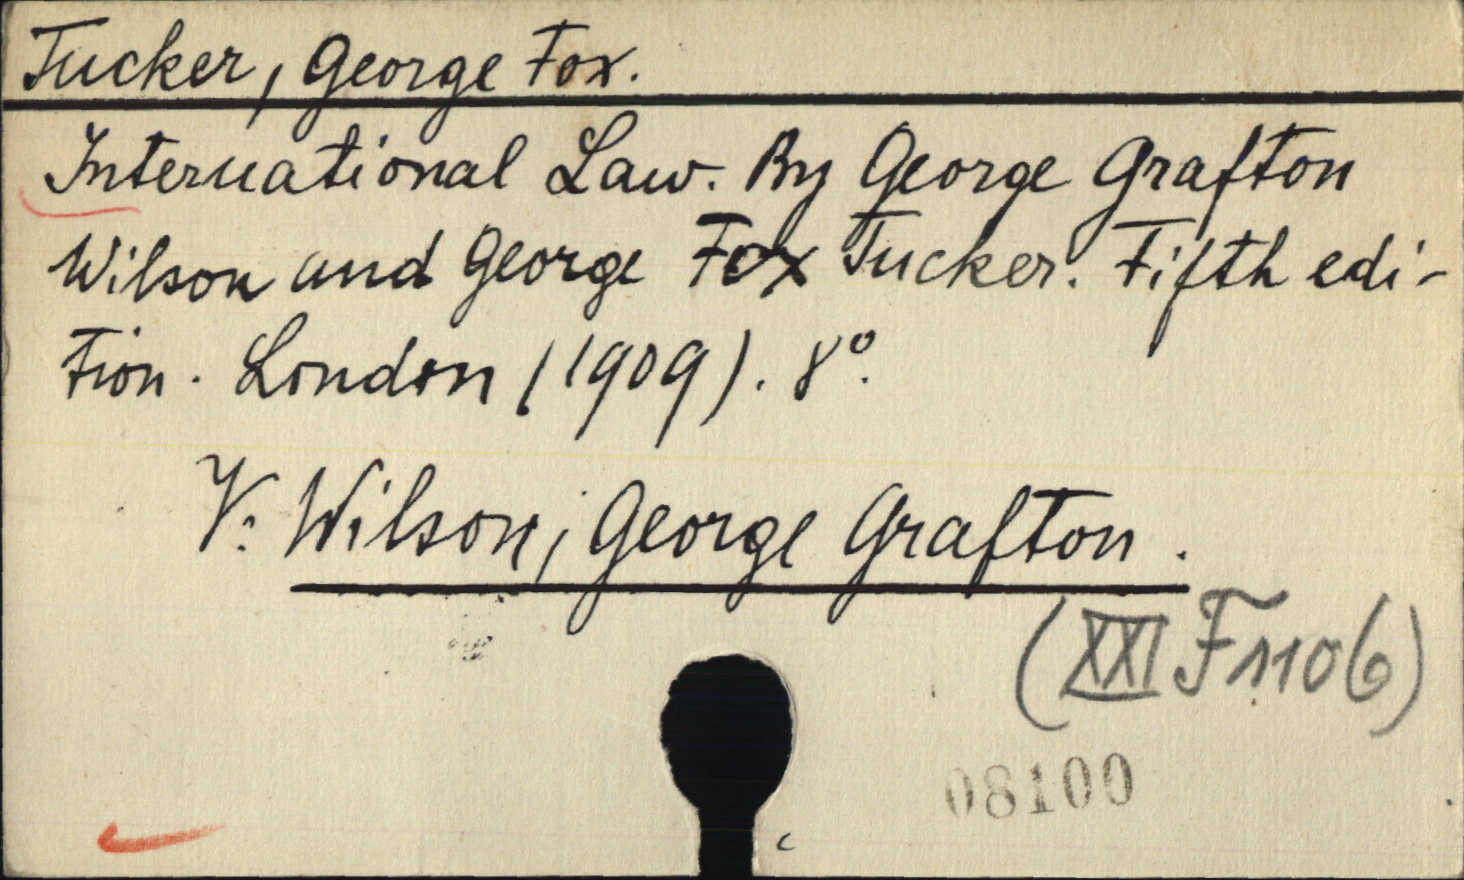 Tucker, George Fox.
International Law. By George Grafton
Wilson and George Fox Tucker. Fifth edi-
tion. London (1909). 8°.
V. Wilson, George Grafton.
(XXI F 1106)
08100